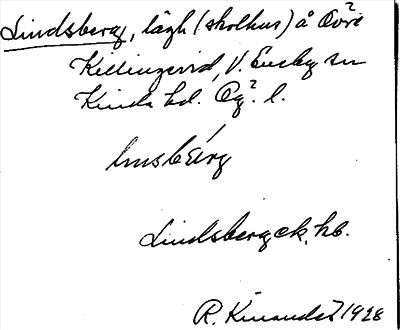 Lindsberg, lägh (skolhus) å Övre
Killingevid, V. Eneby sn
Kinda hd. Ög. l.
Lindsberg ek. kb.
R. Kinander 1928